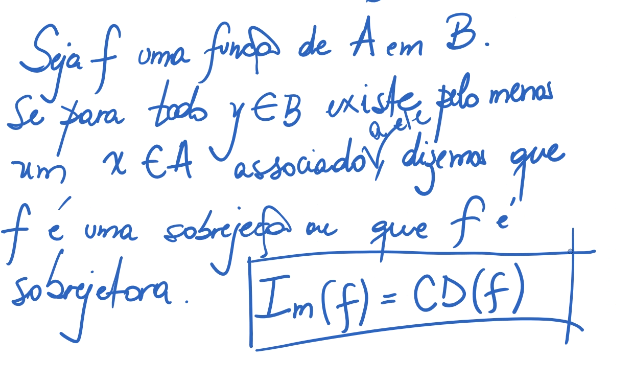 Seja f uma função de A em B.
Se para todo y ∈ B existe pelo menos
um x ∈ A associado a ele, dizemos que
f é uma sobrejeção ou que f é
sobrejetora. Im(f) = CD(f)